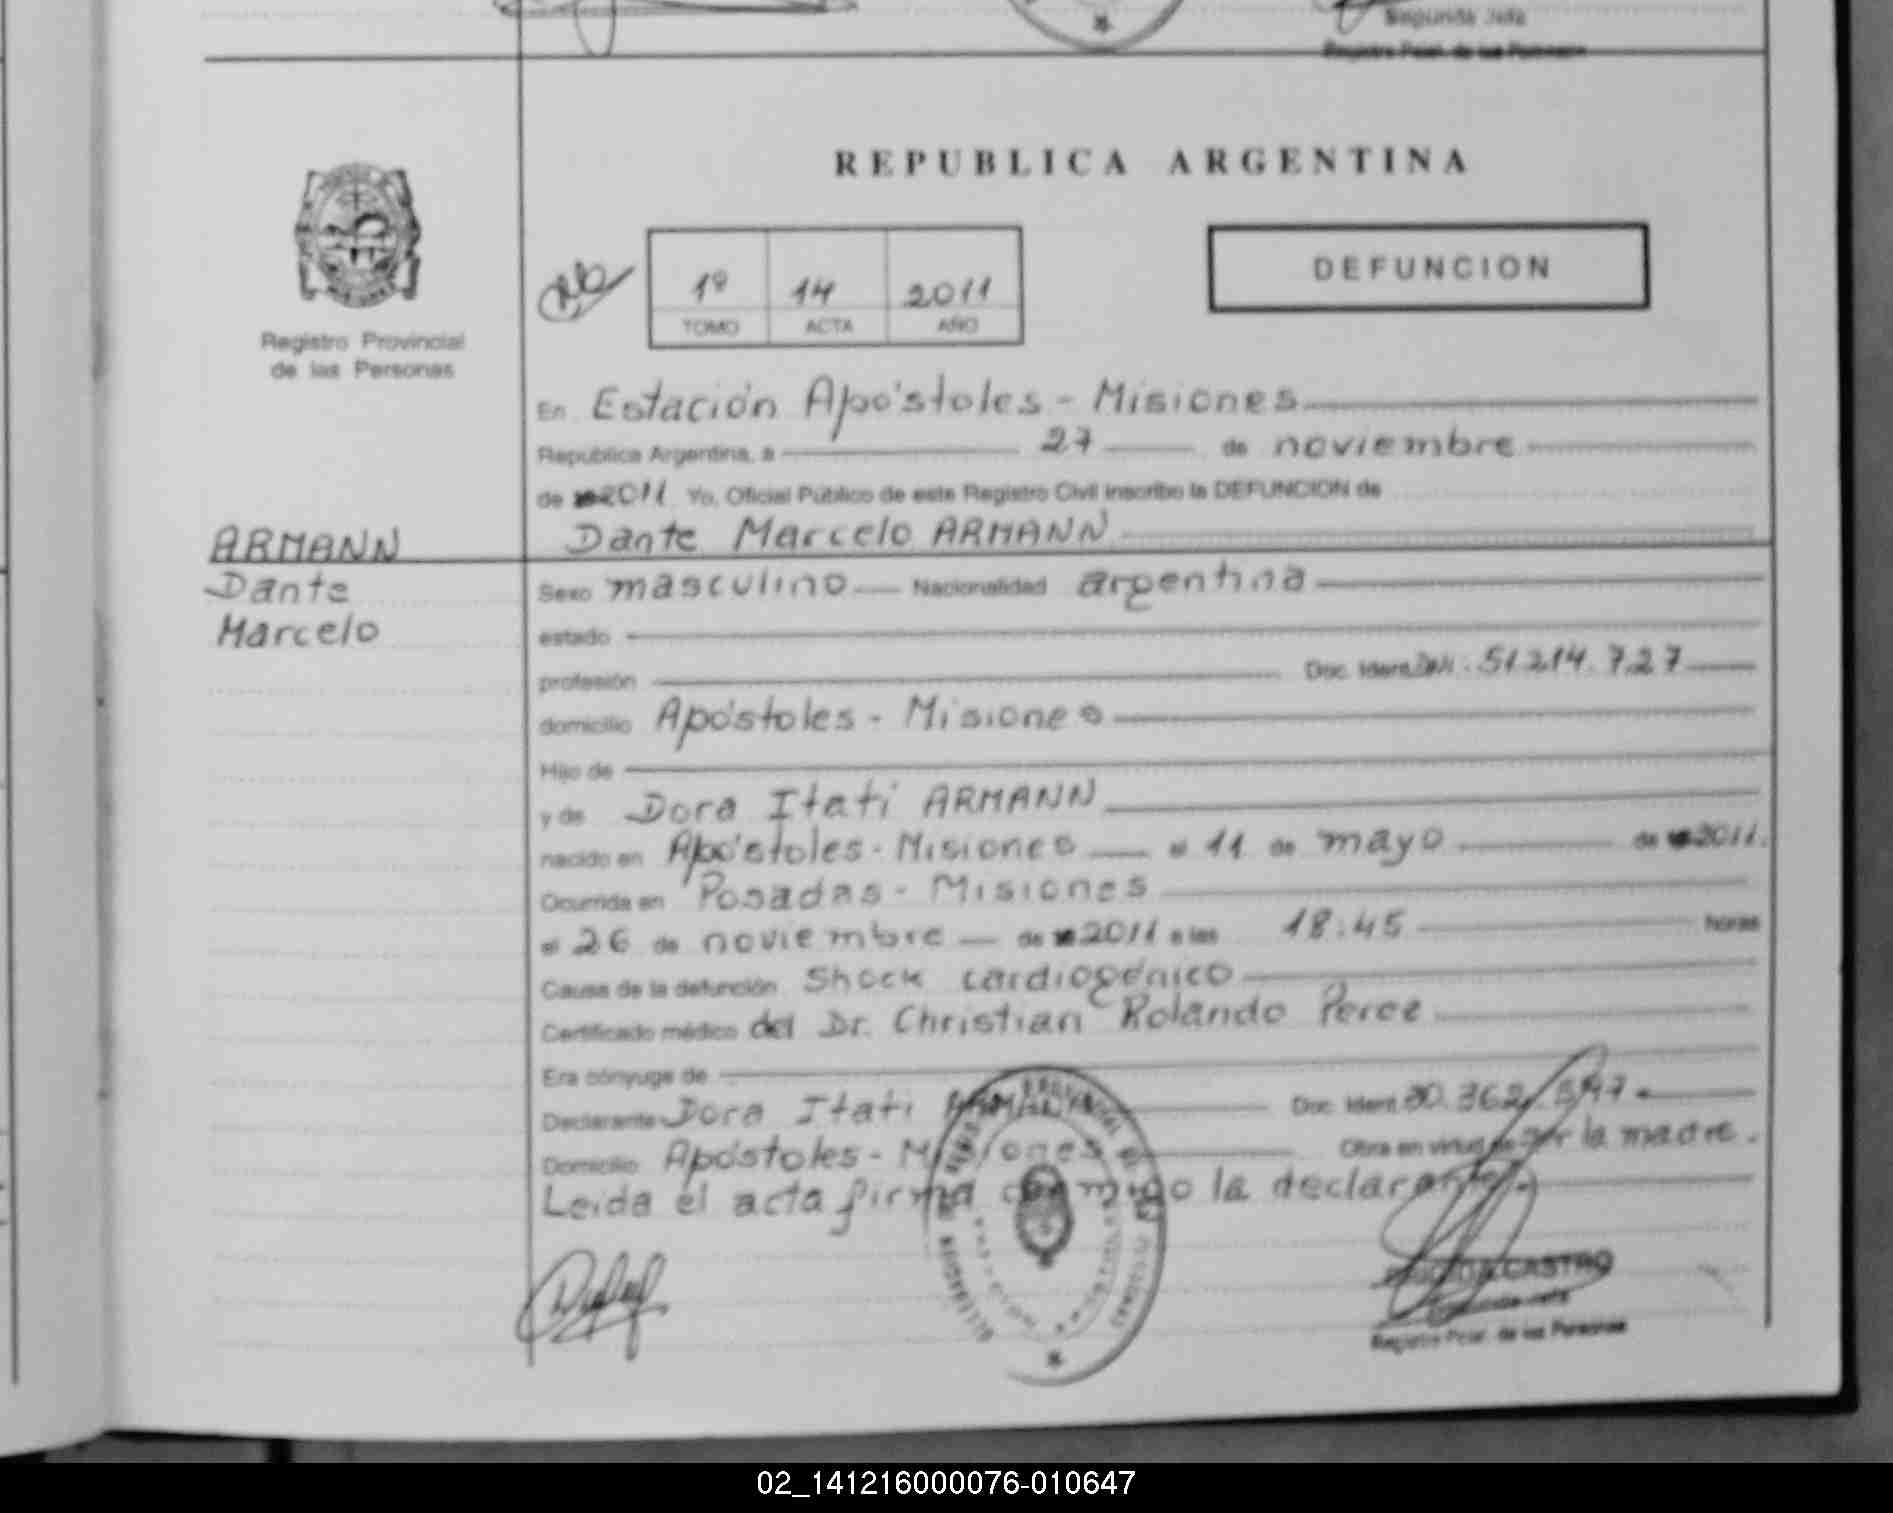 Segunda Jefa
Registro Pcial. de las Personas
REPUBLICA ARGENTINA
Registro Provincial
de las Personas
1º 14 2011
TOMO ACTA AÑO
DEFUNCION
En Estación Apóstoles - Misiones
República Argentina, a 27 de noviembre
de 2011 Yo, Oficial Público de este Registro Civil inscribo la DEFUNCION de
Dante Marcelo ARMANN
ARMANN
Dante
Marcelo
Sexo masculino Nacionalidad argentina
estado
profesión Doc. Ident. DNI. 51.214.727
domicilio Apóstoles - Misiones
Hijo de
y de Dora Itatí ARMANN
nacido en Apóstoles - Misiones el 11 de mayo de 2011.
Ocurrida en Posadas - Misiones
el 26 de noviembre de 2011 a las 18:45 horas
Causa de la defunción Shock cardiogénico
Certificado médico del Dr. Christian Rolando Perez
Era cónyuge de
Declarante Dora Itati ARMANN Doc. Ident. 30.362.547
Domicilio Apóstoles - Misiones Obra en virtud de ser la madre.
Leida el acta firma conmigo la declarante.
CASTRO
Segunda Jefa
Registro Pcial. de las Personas
02_141216000076-010647